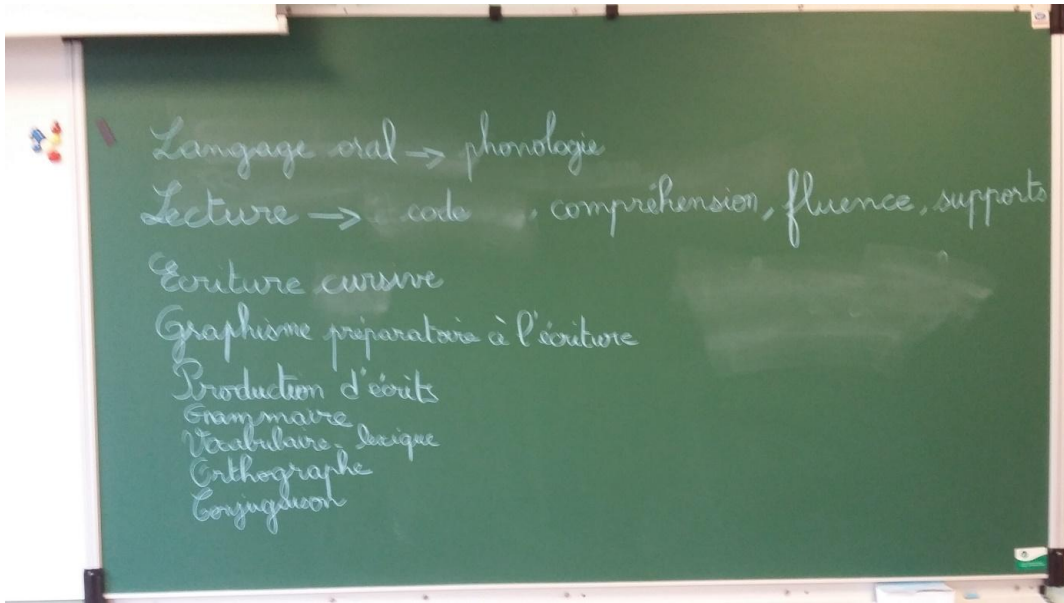 Langage oral → phonologie
Lecture → code , compréhension, fluence, supports
Ecriture cursive
Graphisme préparatoire à l'écriture
Production d'écrits
Grammaire
Vocabulaire, lexique
Orthographe
Conjugaison